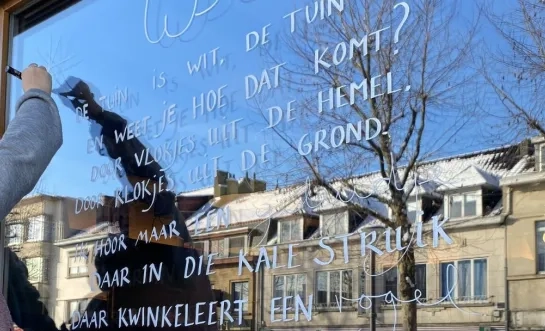 DE TUIN IS WIT, DE TUIN
EN WEET JE HOE DAT KOMT?
DOOR VLOKJES UIT DE HEMEL,
DOOR KLOKJES UIT DE GROND.
HOOR MAAR EEN
DAAR IN DIE KALE STRUIK
DAAR KWINKELEERT EEN vogel